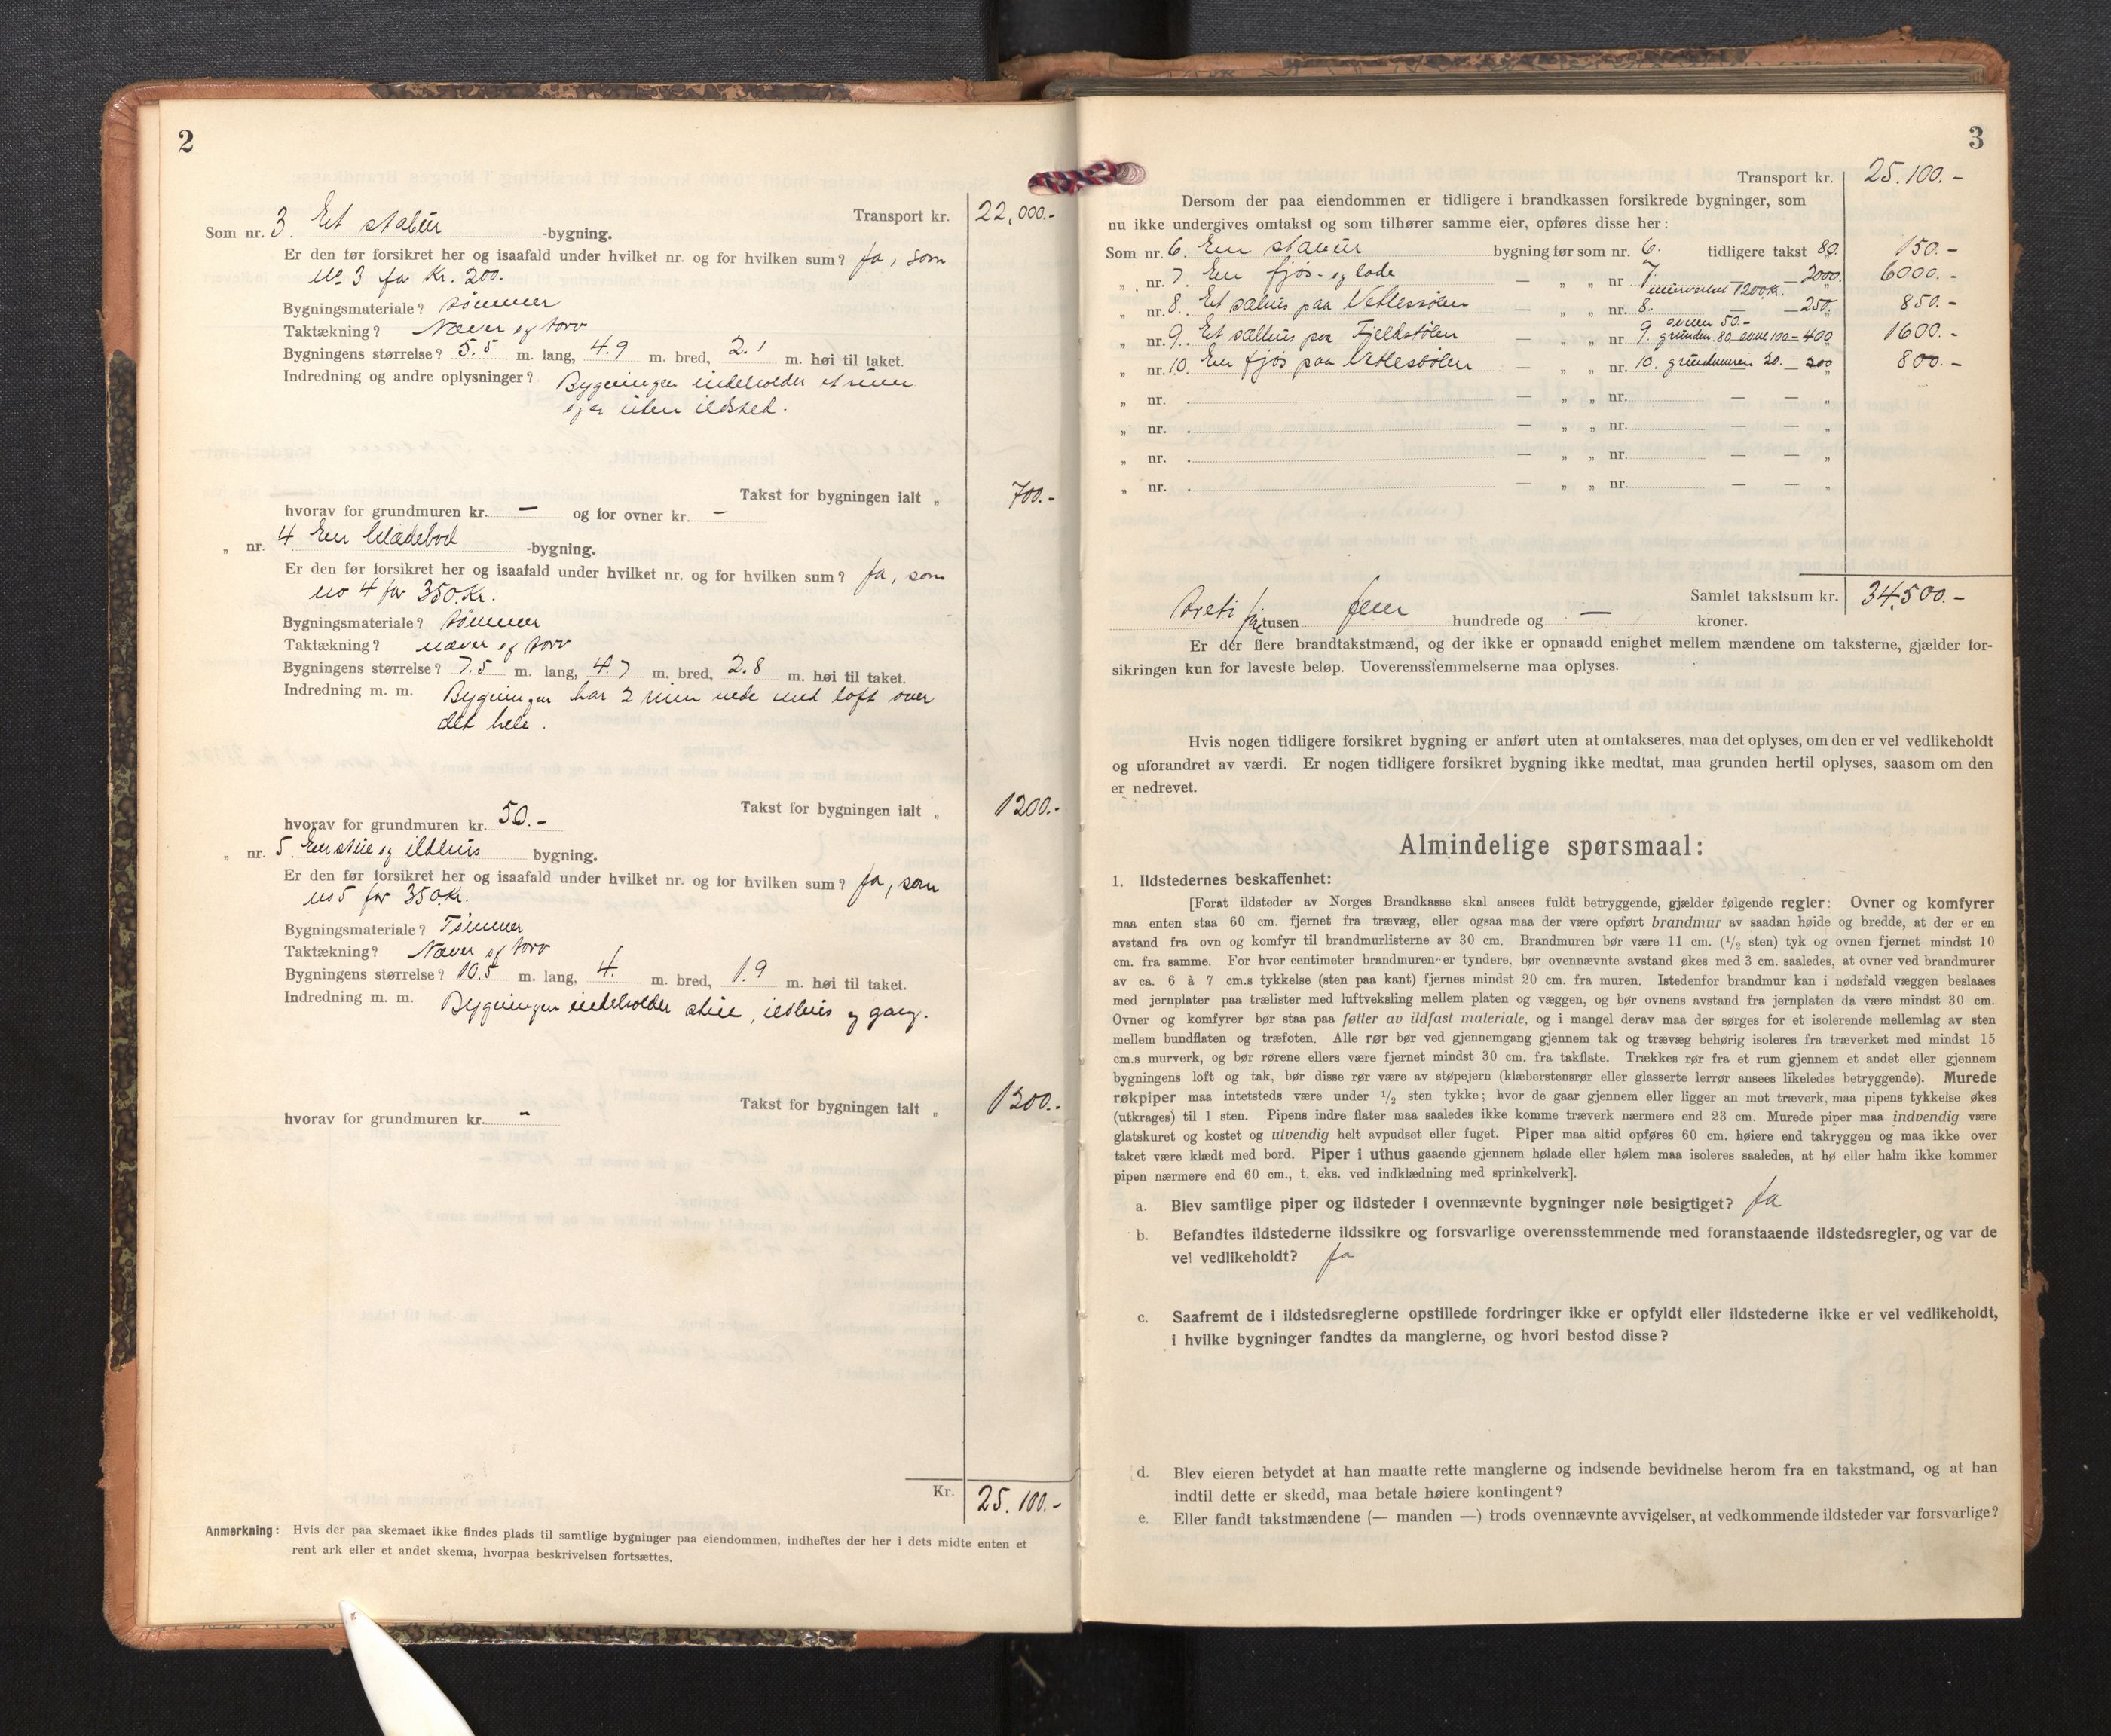 2
Transport kr. 22,000.-
Som nr. 3. Et stabur -bygning.
Er den før forsikret her og isaafald under hvilket nr. og for hvilken sum? Ja, som
No 3 for Kr. 200.
Bygningsmateriale? tømmer
Taktækning? Næver og torv
Bygningens størrelse? 5.5 m. lang, 4.9 m. bred, 2.1 m. høi til taket.
Indredning og andre oplysninger? Bygningen indeholder et rum
og er uten ildsted.
Takst for bygningen ialt „ 700.-
hvorav for grundmuren kr. — og for ovner kr. —
„ nr. 4 En klædebod -bygning.
Er den før forsikret her og isaafald under hvilket nr. og for hvilken sum? Ja, som
no 4 for 350.Kr.
Bygningsmateriale? tømmer
Taktækning? næver og torv
Bygningens størrelse? 7.5 m. lang, 4.7 m. bred, 2.8 m. høi til taket.
Indredning m. m. Bygningen har 2 rum nede med loft over
det hele.
Takst for bygningen ialt „ 1200.-
hvorav for grundmuren kr. 50.-
„ nr. 5. En stue og ildhus bygning.
Er den før forsikret her og isaafald under hvilket nr. og for hvilken sum? Ja, som
no 5 for 350.Kr.
Bygningsmateriale? Tømmer
Taktækning? Næver og torv
Bygningens størrelse? 10.5 m. lang, 4. m. bred, 1.9 m. høi til taket.
Indredning m. m. Bygningen indeholder stue, ildhus og gang.
Takst for bygningen ialt „ 1200.-
hvorav for grundmuren kr. —
Kr. 25.100.-
Anmerkning: Hvis der paa skemaet ikke findes plads til samtlige bygninger paa eiendommen, indheftes der her i dets midte enten et
rent ark eller et andet skema, hvorpaa beskrivelsen fortsættes.
3
Transport kr. 25.100.-
Dersom der paa eiendommen er tidligere i brandkassen forsikrede bygninger, som
nu ikke undergives omtakst og som tilhører samme eier, opføres disse her:
Som nr. 6. En stabur bygning før som nr. 6. tidligere takst 80. 150.-
„ nr. 7. En fjøs- og lade — „ „ nr 7. — 2000. 6000.-
murverket 1200K.
„ nr. 8. Et sælhus paa Vetlestølen — „ „ nr. 8. — 250. 850.-
ovnen 50.-
„ nr. 9. Et sælhus paa Fjeldstølen — „ „ nr 9. grunden 80 ovne 100 — 400 1600.-
„ nr. 10. En fjøs paa Vetlestølen — „ „ nr. 10. grundmuren 20. — 200 800.-
„ nr. . — „ „ nr. — — „
„ nr. . — „ „ nr. — — „
„ nr. . — „ „ nr. — — „
„ nr. . — „ „ nr. — — „
Samlet takstsum kr. 34,500.-
treti fire tusen fem hundrede og — kroner.
Er der flere brandtakstmænd, og der ikke er opnaadd enighet mellem mændene om taksterne, gjælder for-
sikringen kun for laveste beløp. Uoverensstemmelserne maa oplyses.
Hvis nogen tidligere forsikret bygning er anført uten at omtakseres, maa det oplyses, om den er vel vedlikeholdt
og uforandret av værdi. Er nogen tidligere forsikret bygning ikke medtat, maa grunden hertil oplyses, saasom om den
er nedrevet.
Almindelige spørsmaal:
1. Ildstedernes beskaffenhet:
[Forat ildsteder av Norges Brandkasse skal ansees fuldt betryggende, gjælder følgende regler: Ovner og komfyrer
maa enten staa 60 cm. fjernet fra trævæg, eller ogsaa maa der være opført brandmur av saadan høide og bredde, at der er en
avstand fra ovn og komfyr til brandmurlisterne av 30 cm. Brandmuren bør være 11 cm. (1/2 sten) tyk og ovnen fjernet mindst 10
cm. fra samme. For hver centimeter brandmuren er tyndere, bør ovennævnte avstand økes med 3 cm. saaledes, at ovner ved brandmurer
av ca. 6 à 7 cm.s tykkelse (sten paa kant) fjernes mindst 20 cm. fra muren. Istedenfor brandmur kan i nødsfald væggen beslaaes
med jernplater paa trælister med luftveksling mellem platen og væggen, og bør ovnens avstand fra jernplaten da være mindst 30 cm.
Ovner og komfyrer bør staa paa føtter av ildfast materiale, og i mangel derav maa der sørges for et isolerende mellemlag av sten
mellem bundflaten og træfoten. Alle rør bør ved gjennemgang gjennem tak og trævæg behørig isoleres fra træverket med mindst 15
cm.s murverk, og bør rørene ellers være fjernet mindst 30 cm. fra takflate. Trækkes rør fra et rum gjennem et andet eller gjennem
bygningens loft og tak, bør disse rør være av støpejern (klæberstensrør eller glasserte lerrør ansees likeledes betryggende). Murede
røkpiper maa intetsteds være under 1/2 sten tykke; hvor de gaar gjennem eller ligger an mot træverk, maa pipens tykkelse økes
(utkrages) til 1 sten. Pipens indre flater maa saaledes ikke komme træverk nærmere end 23 cm. Murede piper maa indvendig være
glatskuret og kostet og utvendig helt avpudset eller fuget. Piper maa altid opføres 60 cm. høiere end takryggen og maa ikke over
taket være klædt med bord. Piper i uthus gaaende gjennem hølade eller hølem maa isoleres saaledes, at hø eller halm ikke kommer
pipen nærmere end 60 cm., t. eks. ved indklædning med sprinkelverk].
a. Blev samtlige piper og ildsteder i ovennævnte bygninger nøie besigtiget? Ja
b. Befandtes ildstederne ildssikre og forsvarlige overensstemmende med foranstaaende ildstedsregler, og var de
vel vedlikeholdt? Ja
c. Saafremt de i ildstedsreglerne opstillede fordringer ikke er opfyldt eller ildstederne ikke er vel vedlikeholdt,
i hvilke bygninger fandtes da manglerne, og hvori bestod disse?
d. Blev eieren betydet at han maatte rette manglerne og indsende bevidnelse herom fra en takstmand, og at han
indtil dette er skedd, maa betale høiere kontingent?
e. Eller fandt takstmændene (— manden —) trods ovennævnte avvigelser, at vedkommende ildsteder var forsvarlige?